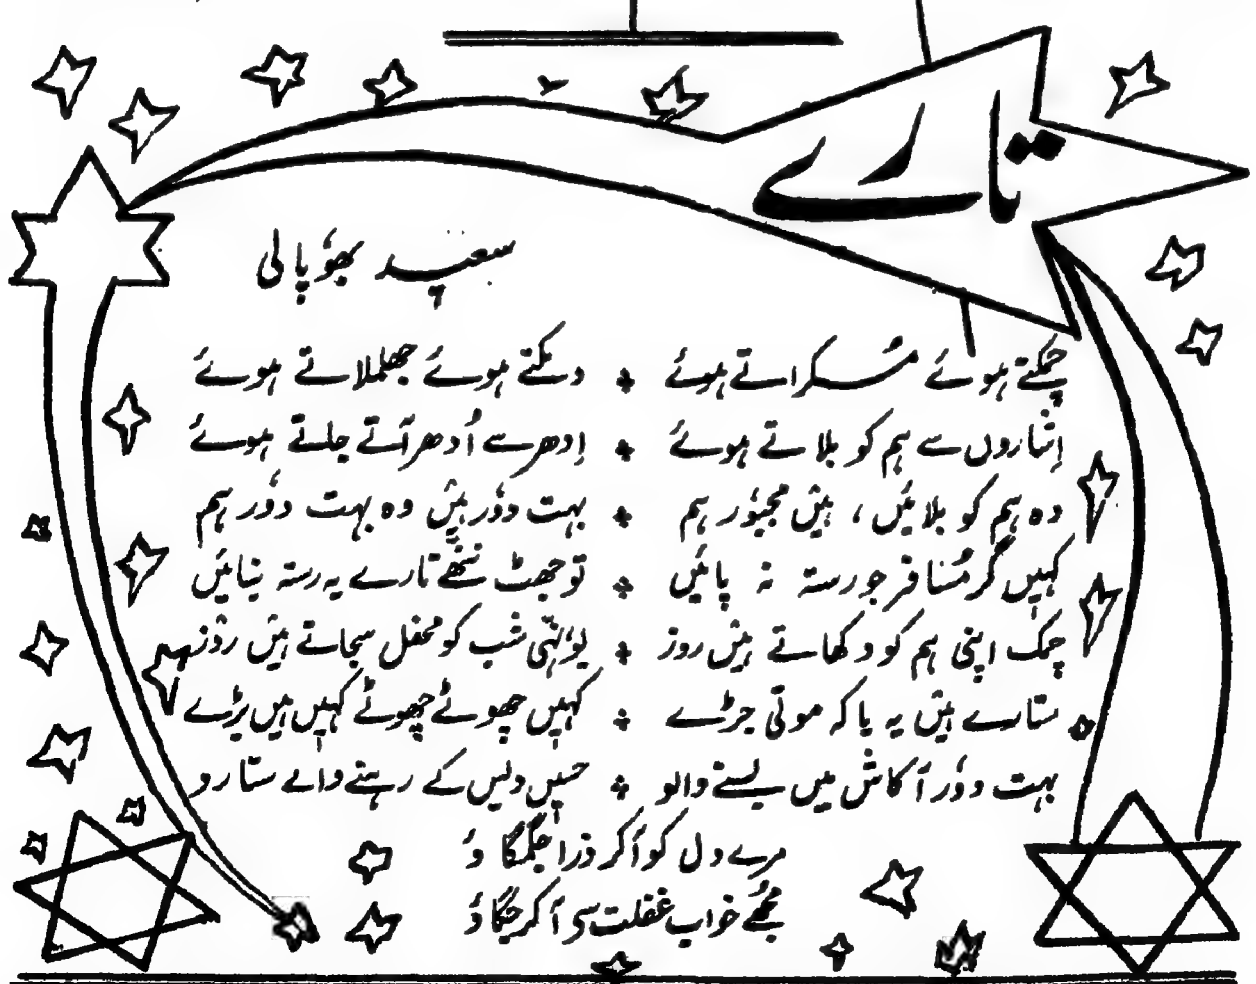 تارے
سعید بھوپالی
چمکتے ہوئے مُسکراتے ہوئے ٭ دمکتے ہوئے جھلملاتے ہوئے
اِشاروں سے ہم کو بلاتے ہوئے ٭ اِدھر سے اُدھر آتے جاتے ہوئے
وہ ہم کو بلائیں، ہیں مجبور ہم ٭ بہت دور ہیں وہ بہت دور ہم
کہیں گر مُسافر جو رستہ نہ پائیں ٭ تو جھٹ ننھے تارے یہ رستہ بتائیں
چمک اپنی ہم کو دکھاتے ہیں روز ٭ یونہی شب کو محفل سجاتے ہیں روز
ستارے ہیں یہ یا کہ موتی جڑے ٭ کہیں چھوٹے چھوٹے کہیں ہیں بڑے
بہت دور آکاش میں بسنے والو ٭ حسیں دیس کے رہنے والے ستارو
مرے دل کو آکر ذرا جگمگاؤ
مجھے خواب غفلت سے آکر جگاؤ